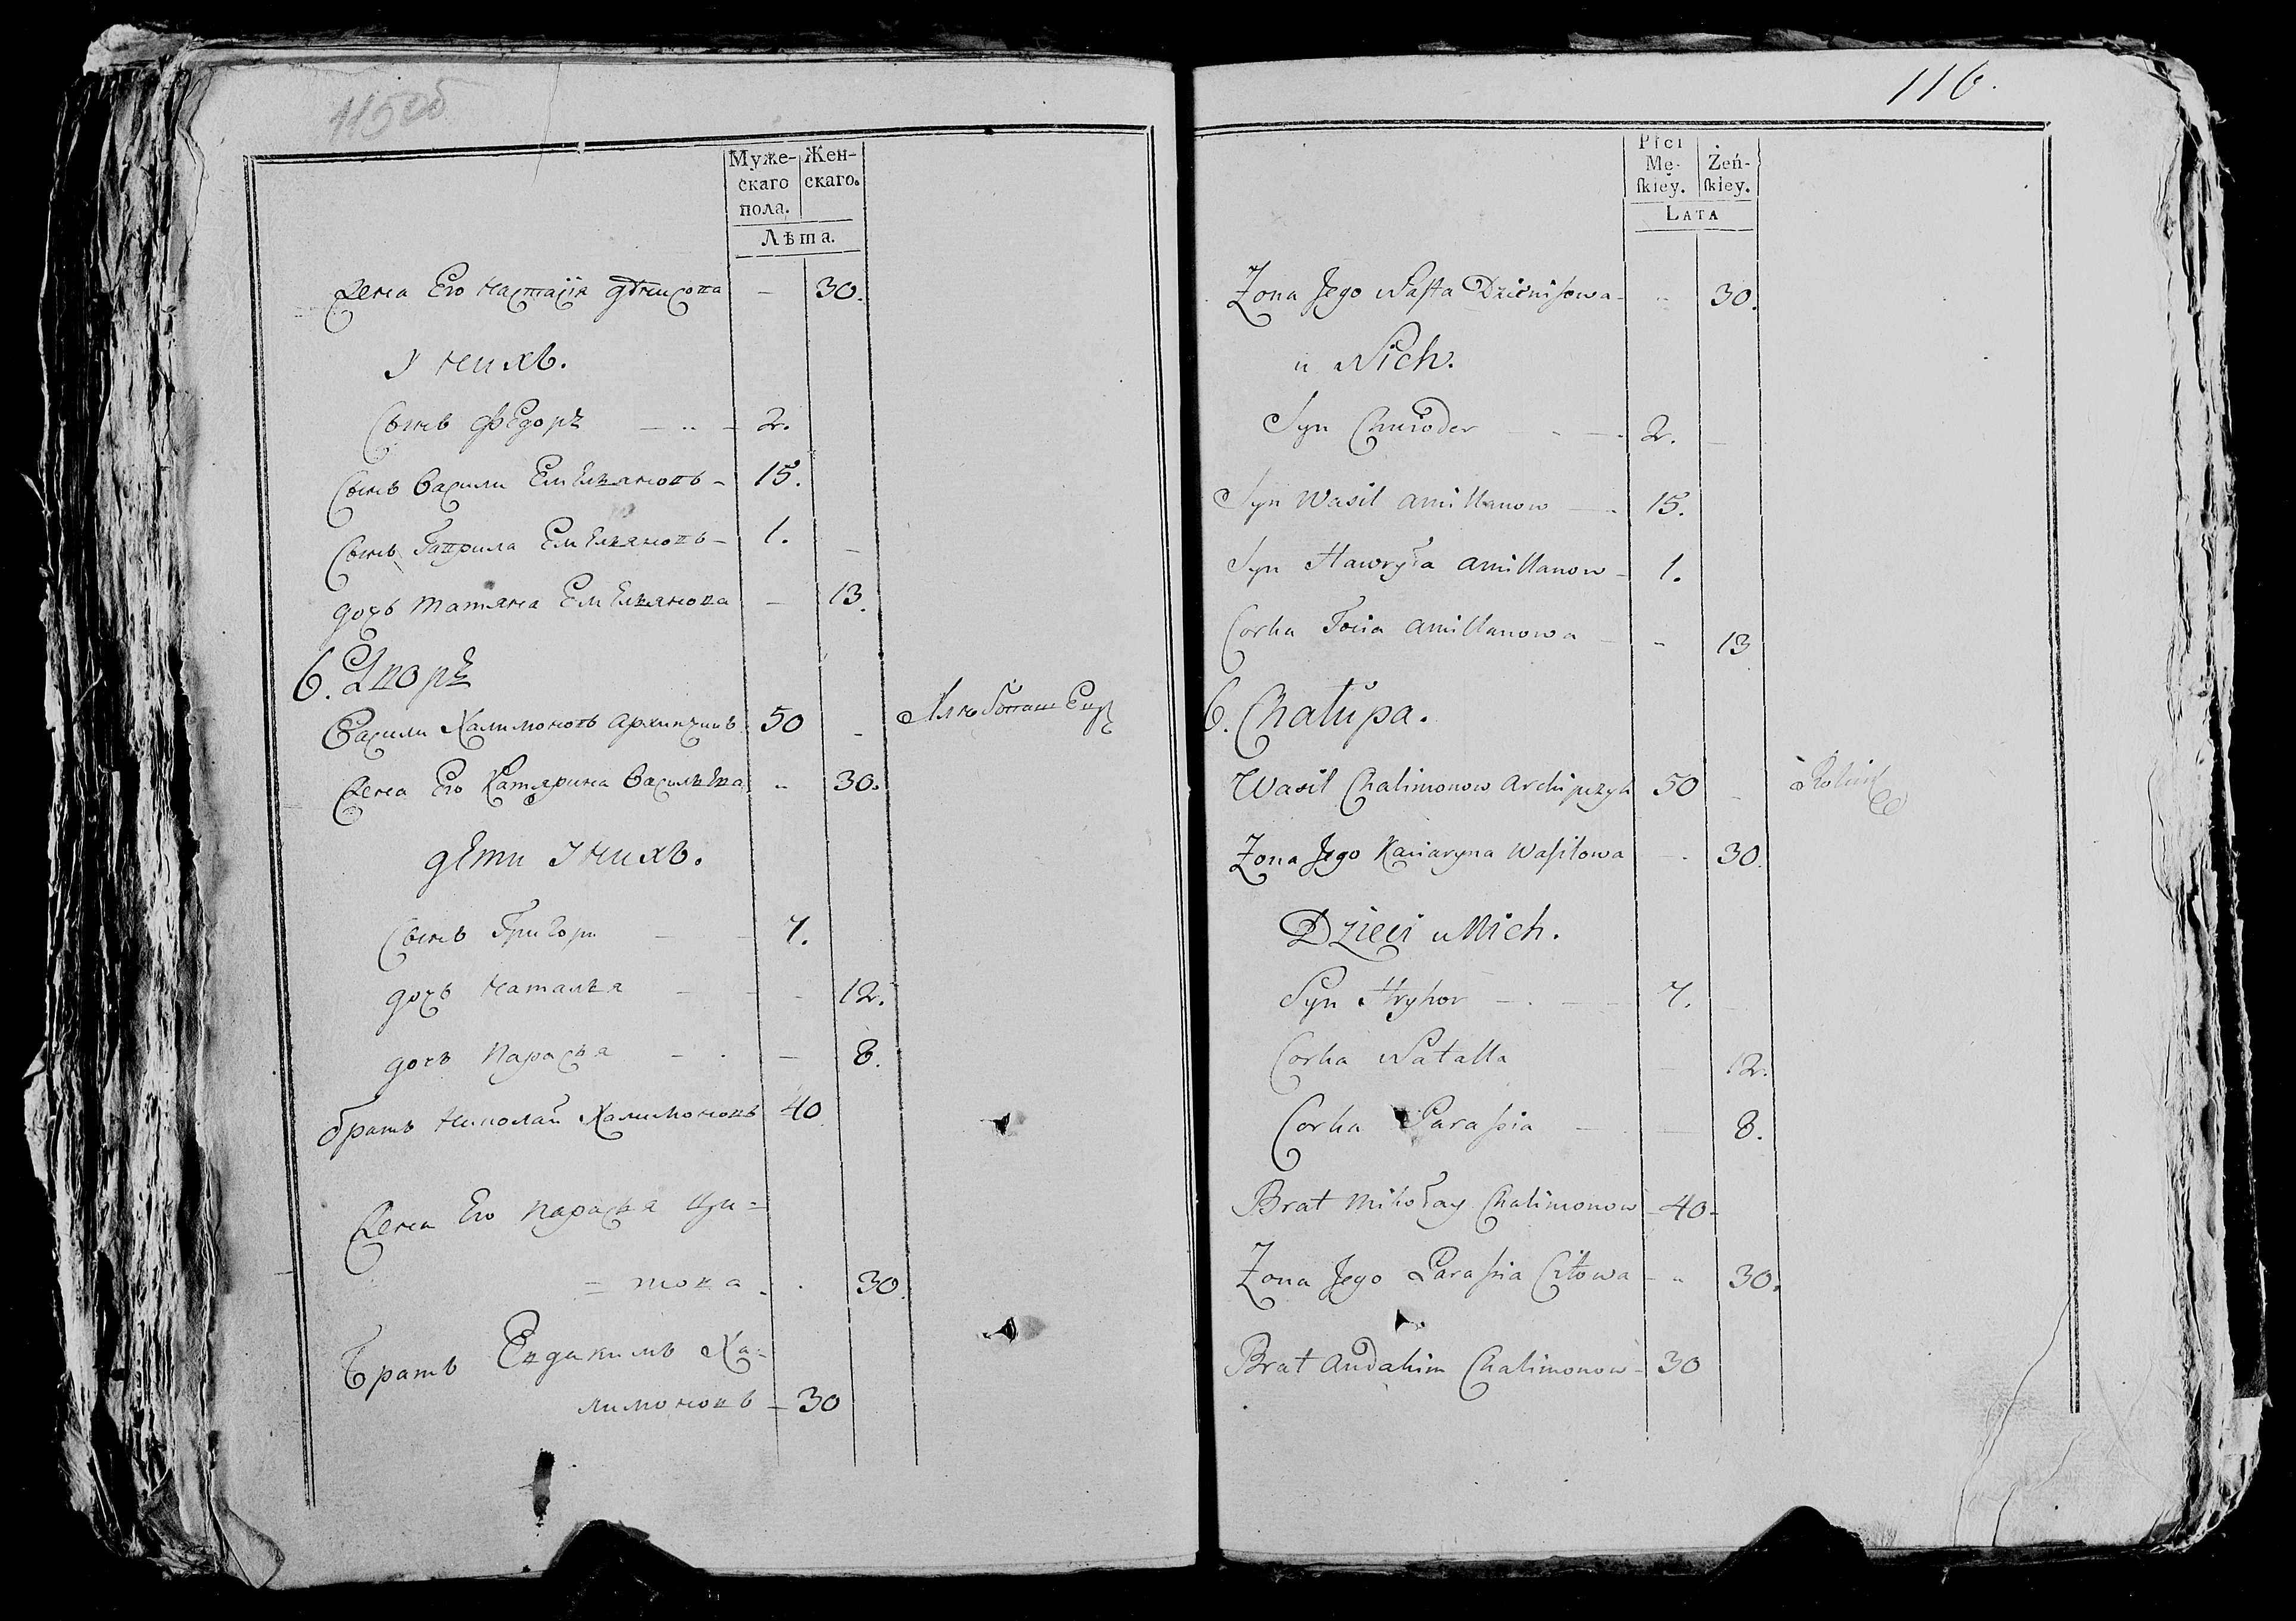 115об
Муже-
скаго
пола.
Жен-
скаго.
Лѣта.
Жена Его Настасія Дѣнисова - 30.
У нихъ.
Сынъ Федоръ - 2.
Сынъ Васили Емельяновъ - 15.
Сынъ Гаврила Емельяновъ - 1.
дочь Татяна Емельянова - 13.
6. Дворъ
Васили Халимоновъ Архипчикъ 50 -
Жена Его Катярина Васильева 30.
дети У нихъ.
Сынъ Григори - 7.
дочь Наталья - 12.
дочь Парасья - 8.
братъ Николай Халимоновъ 40
Жена Его Парасья Ци=
= това 30.
Братъ Евдакимъ Ха-
лимоновъ - 30
116.
Płci
Mę-
ſkiey.
Żeń-
ſkiey.
LATA
Zona Jego Nasta Dzienisowa - 30.
u Nich.
Syn Chwioder - 2. -
Syn Wasil amillanow - 15.
Syn Hawryła amillanow - 1.
Corka Tocia amillanowa - 13
6. Chałupa.
Wasil Chalimonow Archipczyk 50 -
Zona Jego Kaciaryna Wasilowa - 30.
Dzieci u Nich.
Syn Hryhor - 7.
Corka Natalla - 12.
Corka Parasia - 8.
Brat Mikołay Chalimonow - 40 -
Zona Jego Parasia Citowa - 30.
Brat Audakim Chalimonow - 30